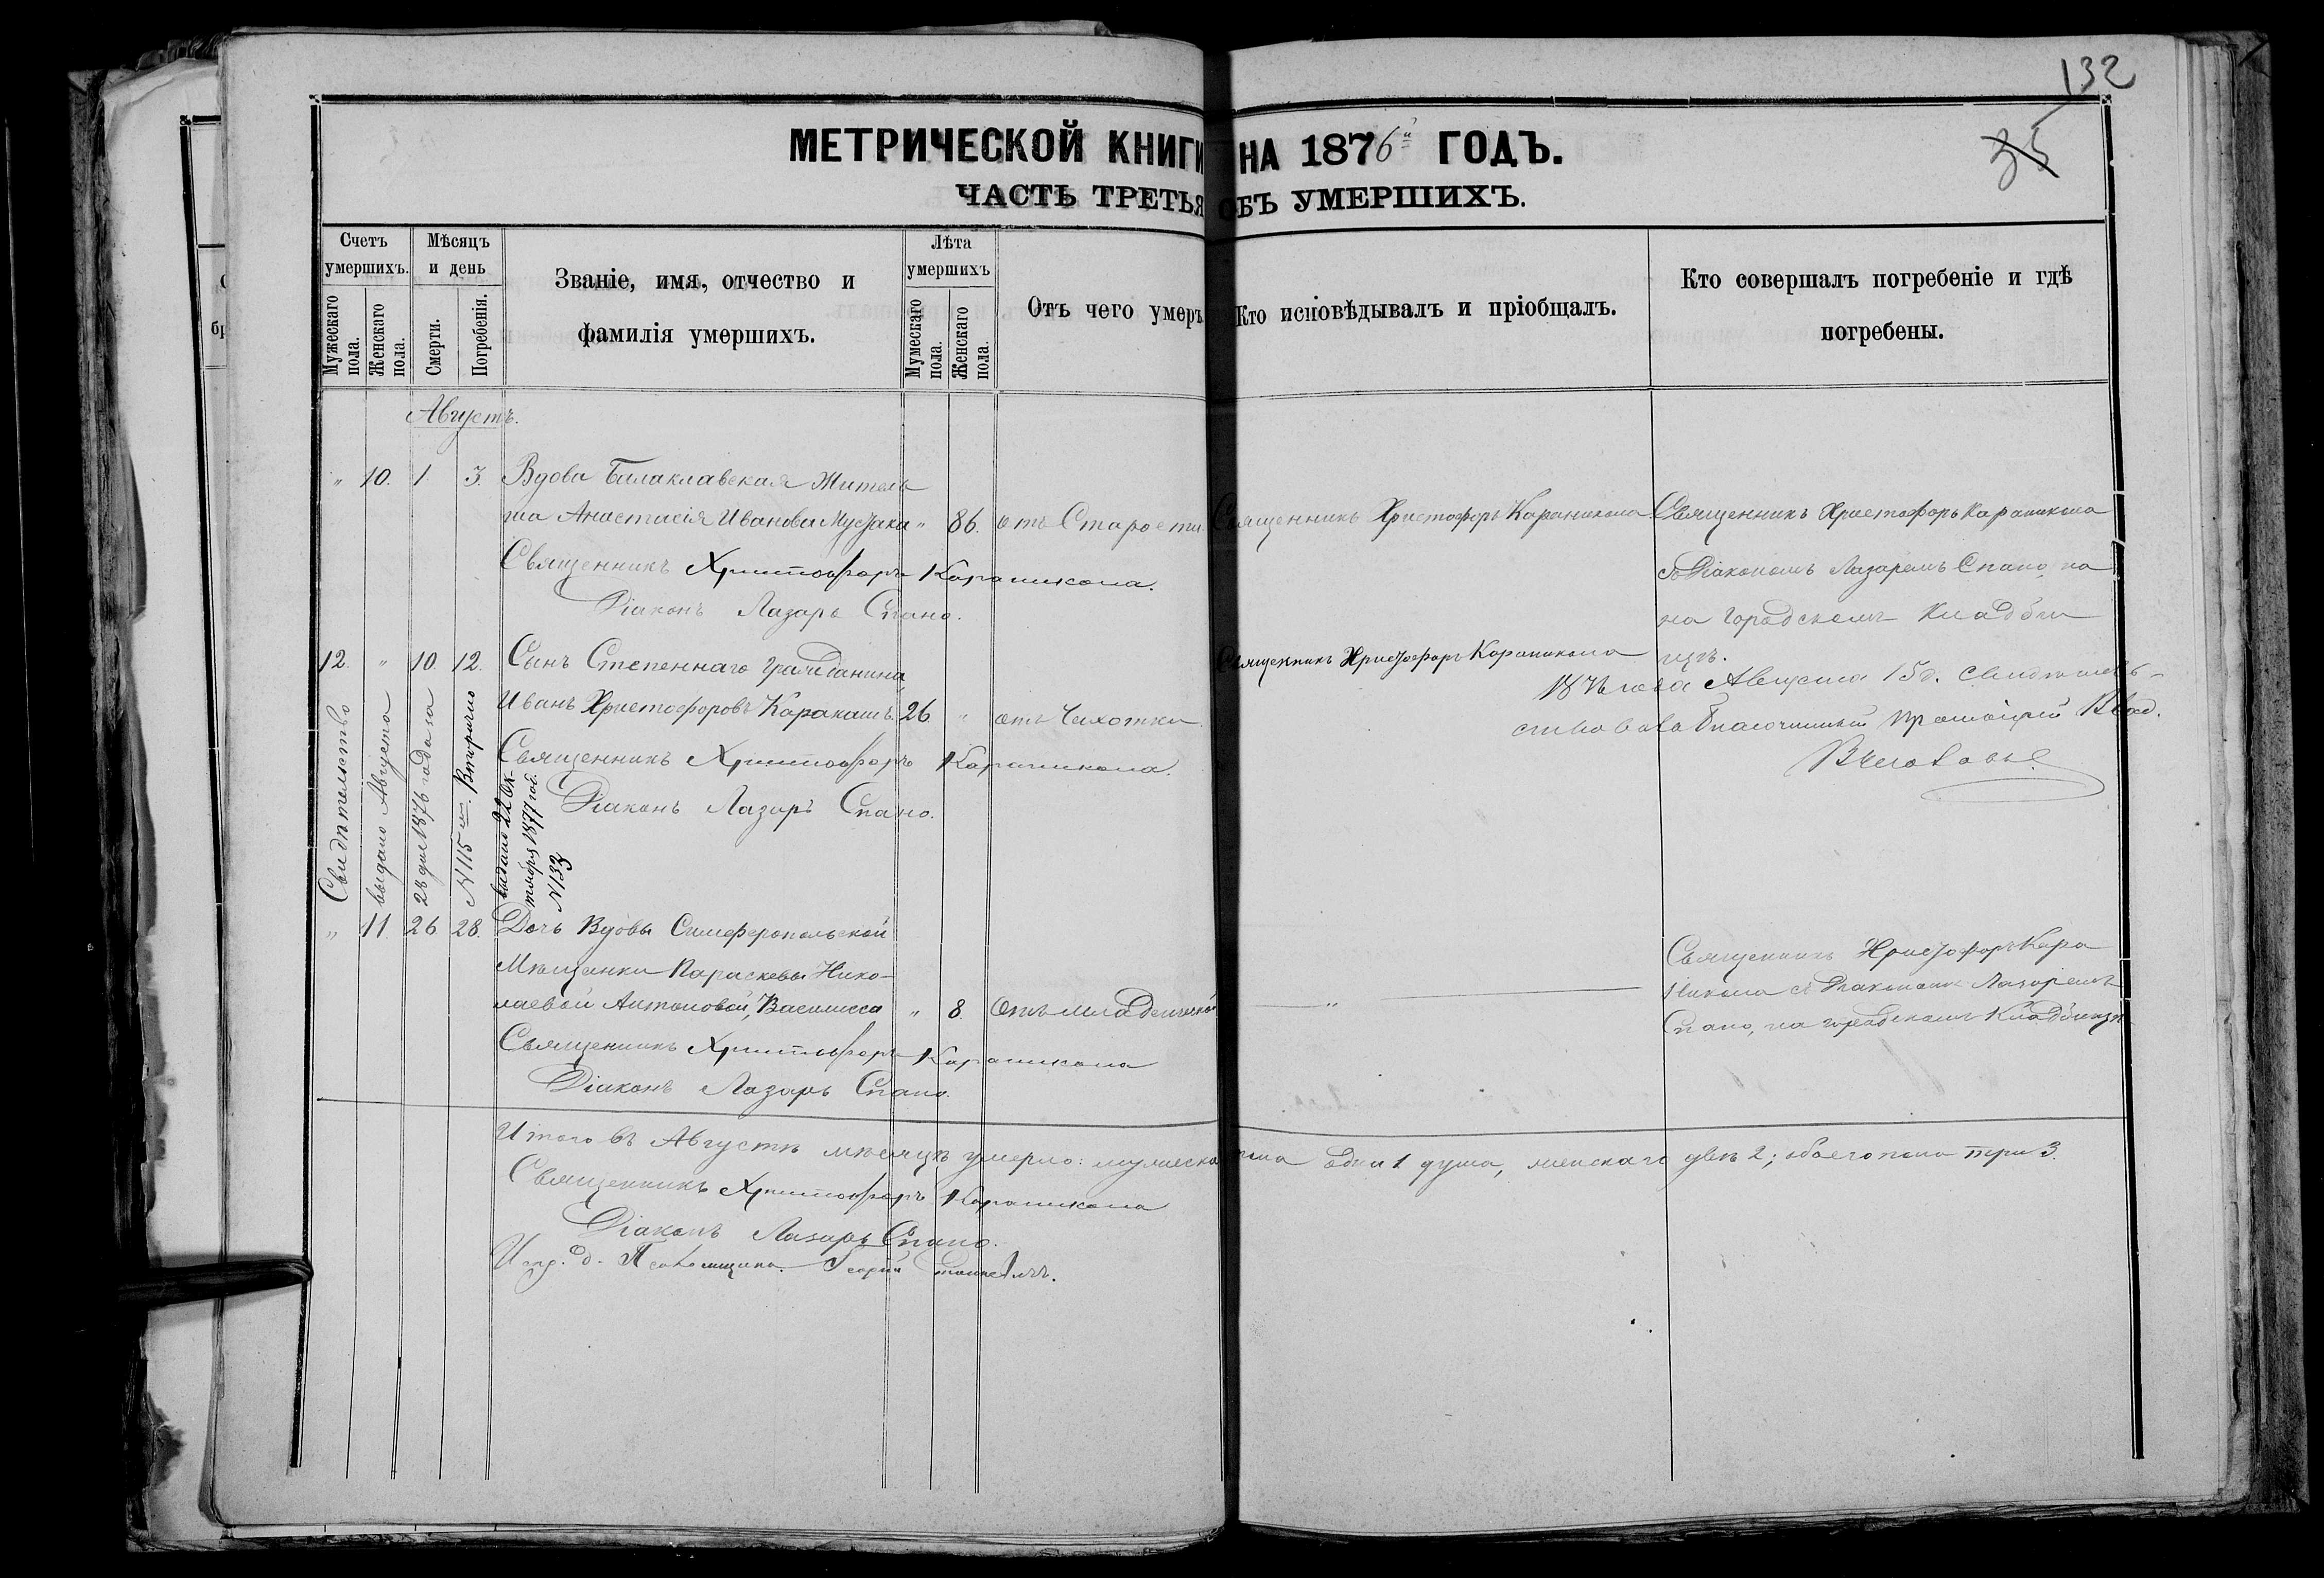 132
35
МЕТРИЧЕСКОЙ КНИГИ НА 1876й ГОДЪ.
ЧАСТЬ ТРЕТЬЯ ОБЪ УМЕРШИХЪ.
Счетъ умершихъ.
Мужескаго пола.
Женскаго пола.
Мѣсяцъ и день
Смерти.
Погребенія.
Званіе, имя, отчество и
фамилія умершихъ.
Лѣта умершихъ
Мужескаго пола.
Женскаго пола.
Отъ чего умеръ
Кто исповѣдывалъ и пріобщалъ.
Кто совершалъ погребеніе и гдѣ
погребены.
Августъ.
" 10. 1. 3. Вдова Балаклавская житель
ша Анастасія Иванова Мустака " 86. отъ Старости Священникъ Христофоръ Караникола Священникъ Христофоръ Караникола
Священникъ Христофоръ Караникола.
съ Діакономъ Лазаремъ Спано, на
Діаконъ Лазарь Спано.
на городскомъ кладби
щѣ.
12. " 10. 12. Сынъ Степеннаго гражданина,
Священникъ Христофоръ Караникола
Иванъ Христофоровъ Каракашъ. 26 " отъ Чахотки
1876 года Августа 15 д. Свидѣтель-
Священникъ Христофоръ Караникола.
Діаконъ Лазарь Спано.
Свидѣтельство
выдано Августа
28 дня 1876 года за
N 115 м. Вторично
выдано 22 Ок-
тября 1877 год.
N 133
" 11. 26 28. Дочь Вдовы Симферопольской
Мѣщанки Параскевы Нико-
лаевой Антоновой, Василисса " 8. Отъ младенческой "
Священникъ Христофоръ Кара
никола съ Діакономъ Лазаремъ
Спано, на городскомъ Кладбищѣ
Священникъ Христофоръ Караникола
Діаконъ Лазарь Спано.
Итого въ Августѣ мѣсяцѣ умерло: мужеска пола одна 1 душа, женскаго двѣ 2; обоего пола три 3.
Священникъ Христофоръ Караникола
Діаконъ Лазарь Спано.
Испр. д. Псаломщика Георгій